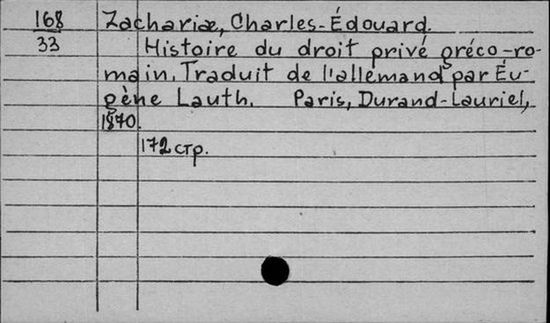 168 Zachariæ, Charles-Édouard.
33 Histoire du droit privé gréco-ro-
main. Traduit de l'allemand par Eu-
gène Lauth. Paris, Durand-Lauriel,
1870.
172 стр.